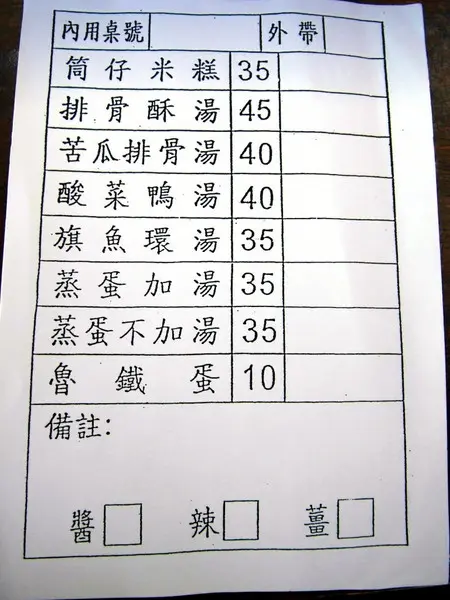 內用桌號 外帶
筒仔米糕 35
排骨酥湯 45
苦瓜排骨湯 40
酸菜鴨湯 40
旗魚環湯 35
蒸蛋加湯 35
蒸蛋不加湯 35
魯鐵蛋 10
備註:
醬 辣 薑